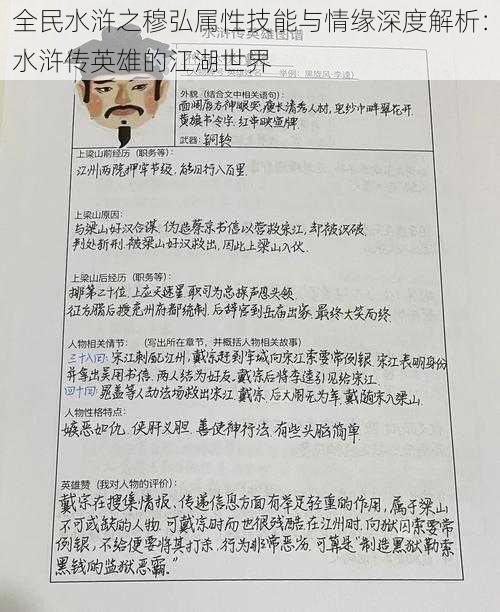 全民水浒之穆弘属性技能与情缘深度解析：
水浒传英雄的江湖世界
水浒传英雄图谱
举例：黑旋风·李逵）
外貌（结合文中相关语句）：
面阔唇方神眼突，瘦长清秀人材，皂纱巾畔翠花开。
黄旗书令字，红串映宣牌。
武器：铜铃
上梁山前经历（职务等）：
江州两院押牢节级，能日行八百里
上梁山原因：
与梁山好汉合谋，伪造蔡京书信以营救宋江，却被识破，
判处斩刑，被梁山好汉救出，因此上梁山入伙。
上梁山后经历（职务等）：
排第二十位，上应天速星，职司为总探声息头领
征方腊后授兖州府都统制，后辞官到岳庙出家，最终大笑而终。
人物相关情节：（写出所在章节，并概括人物相关故事）
三十八回：宋江刺配江州，戴宗赶到牢城向宋江索要常例银，宋江表明身份
并拿出吴用书信，两人结为好友。戴宗后将李逵引见给宋江。
四十回：晁盖等人劫法场救出宋江、戴宗，后大闹无为军，戴随宋入梁山。
人物性格特点：
嫉恶如仇，侠肝义胆，善使神行法，有些头脑简单
英雄赞（我对人物的评价）：
戴宗在搜集情报、传递信息方面有举足轻重的作用，属于梁山
不可或缺的人物。可戴宗时而也很残酷，在江州时，向狱囚索要常
例银，不给便要将其打杀，行为非常恶劣，可算是“制造黑狱勒索
黑钱的监狱恶霸。”